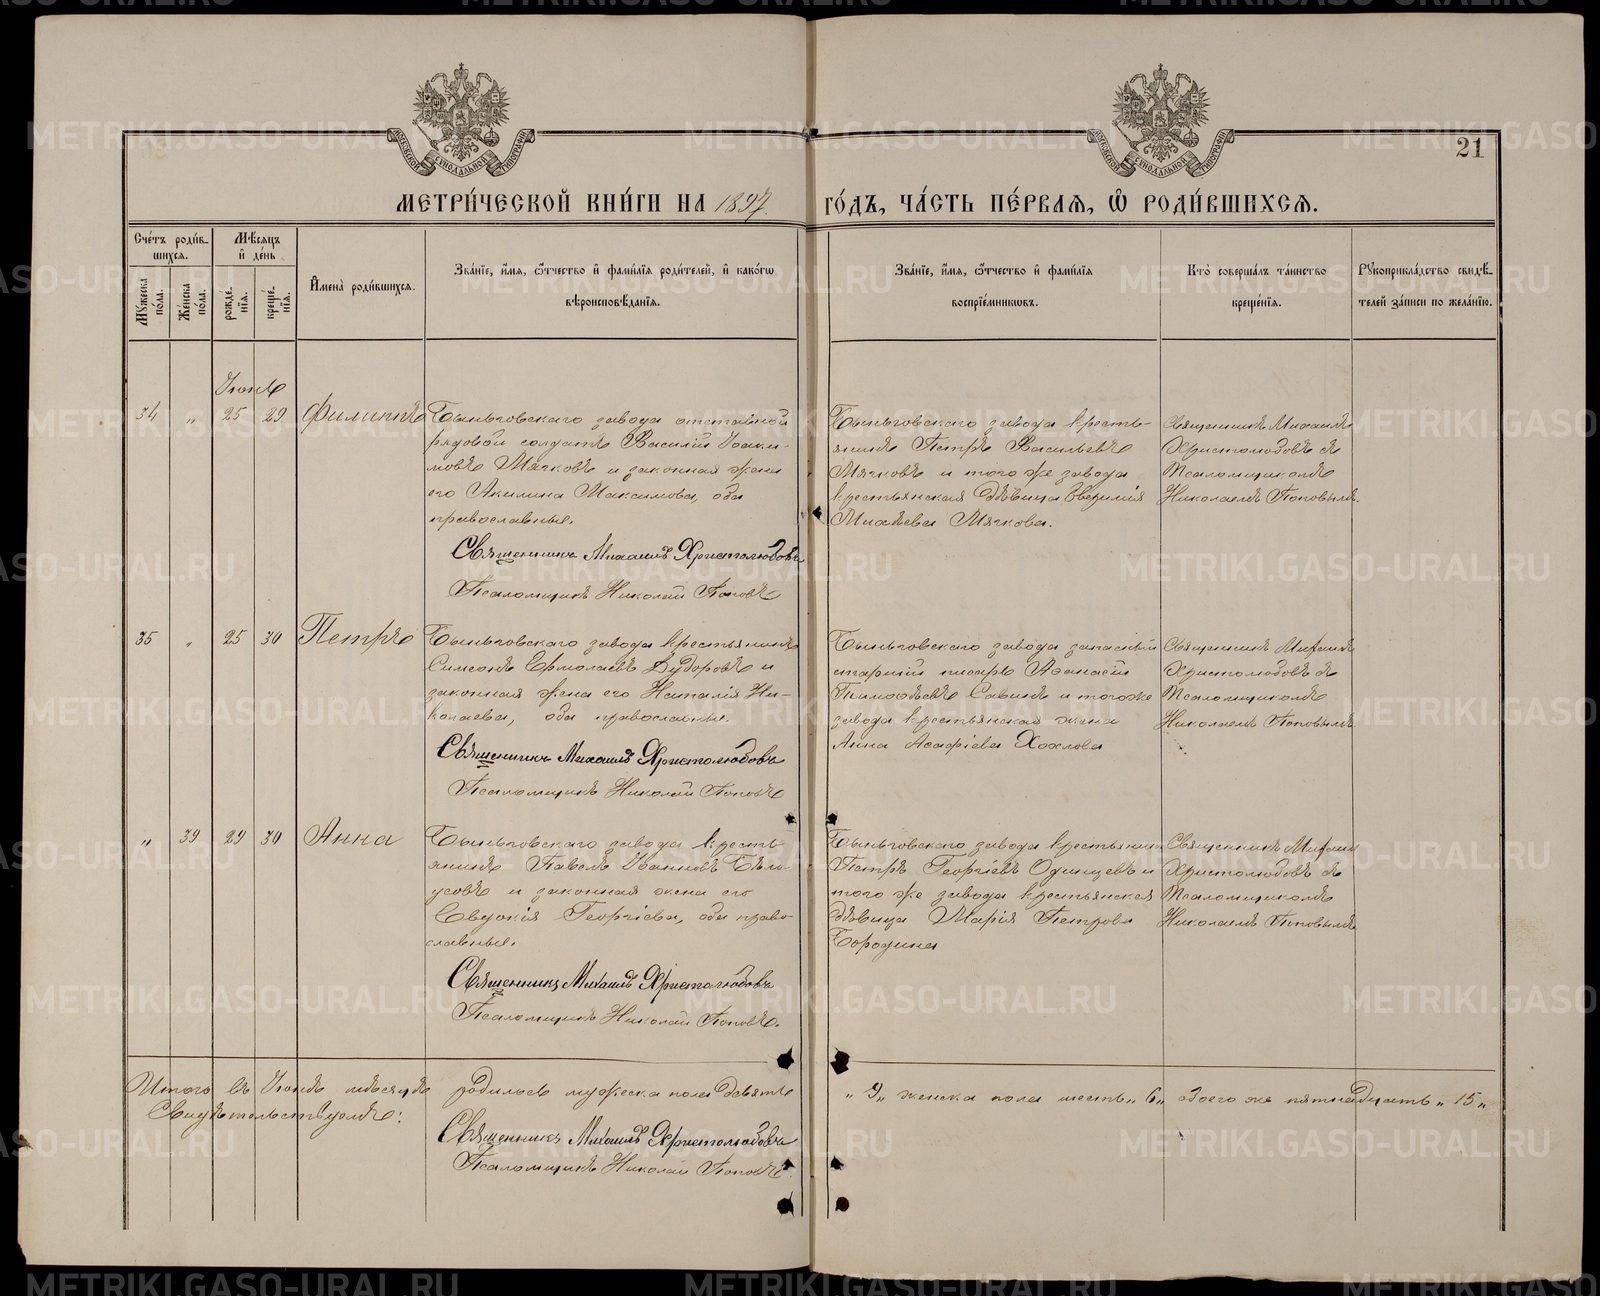 METRIKI.GASO-URAL.RU
МОСКОВСКОЙ СѴНОДАЛЬНОЙ ТИПОГРАФІИ
МОСКОВСКОЙ СѴНОДАЛЬНОЙ ТИПОГРАФІИ
21
МЕТРИ́ЧЕСКОЙ КНИ́ГИ НА 1897
ГО́ДЪ, ЧА́СТЬ ПЕ́РВАЯ, Ѽ РОДИ́ВШИХСЯ.
Сче́тъ роди́вшихся.
Мужеска по́ла.
Же́нска по́ла.
Мѣ́сяцъ и҆ де́нь
рожде́нїя.
креще́нїя.
И҆мена̀ роди́вшихся.
Зва́нїе, и҆́мя, ѻ҆́тчество и҆ фами́лїя роди́телей, и҆ како́гѡ
вѣроисповѣ́данїя.
Зва́нїе, и҆́мя, ѻ҆́тчество и҆ фами́лїя
воспрїе́мникѡвъ.
Кто̀ соверша́лъ та́инство
креще́нїя.
Рукоприкла́дство свидѣ́телей за́писи по жела́нїю.
Іюнь
34 „ 25 29 Филиппъ
Быньговскаго завода отставной
рядовой солдатъ Василій Іоаки-
мовъ Мячковъ и законная жена
его Акилина Максимова, оба
православные.
Священникъ Михаилъ Христолюбовъ
Псаломщикъ Николай Поповъ
Быньговскаго завода кресть-
янинъ Петръ Васильевъ
Мячковъ и того же завода
крестьянская дѣвица Евфимія
Михѣева Мячкова.
Священникъ Михаилъ
Христолюбовъ съ
Псаломщикомъ
Николаемъ Поповымъ.
35 „ 25 30 Петръ
Быньговскаго завода крестьянинъ
Симеонъ Ермолаевъ Дудоровъ и
законная жена его Наталія Ни-
колаева, оба православные.
Священникъ Михаилъ Христолюбовъ
Псаломщикъ Николай Поповъ
Быньговскаго завода запасный
старшій писарь Аѳанасій
Тимоѳеевъ Савинъ и того же
завода крестьянская жена
Анна Асафіева Хохлова
Священникъ Михаилъ
Христолюбовъ съ
Псаломщикомъ
Николаемъ Поповымъ
„ 39 29 30 Анна
Быньговскаго завода кресть-
янинъ Павелъ Іоанновъ Бѣло-
усовъ и законная жена его
Евдокія Георгіева, оба право-
славные.
Священникъ Михаилъ Христолюбовъ
Псаломщикъ Николай Поповъ.
Быньговскаго завода крестьянинъ
Петръ Георгіевъ Одинцевъ и
того же завода крестьянская
дѣвица Марія Петрова
Бородина
Священникъ Михаилъ
Христолюбовъ съ
Псаломщикомъ
Николаемъ Поповымъ
Итого въ Іюнѣ мѣсяцѣ родилось мужеска пола девять „ 9 „ женска пола шесть „ 6 „ обоего же пятнадцать „ 15 „
Свидѣтельствуемъ:
Священникъ Михаилъ Христолюбовъ
Псаломщикъ Николай Поповъ.